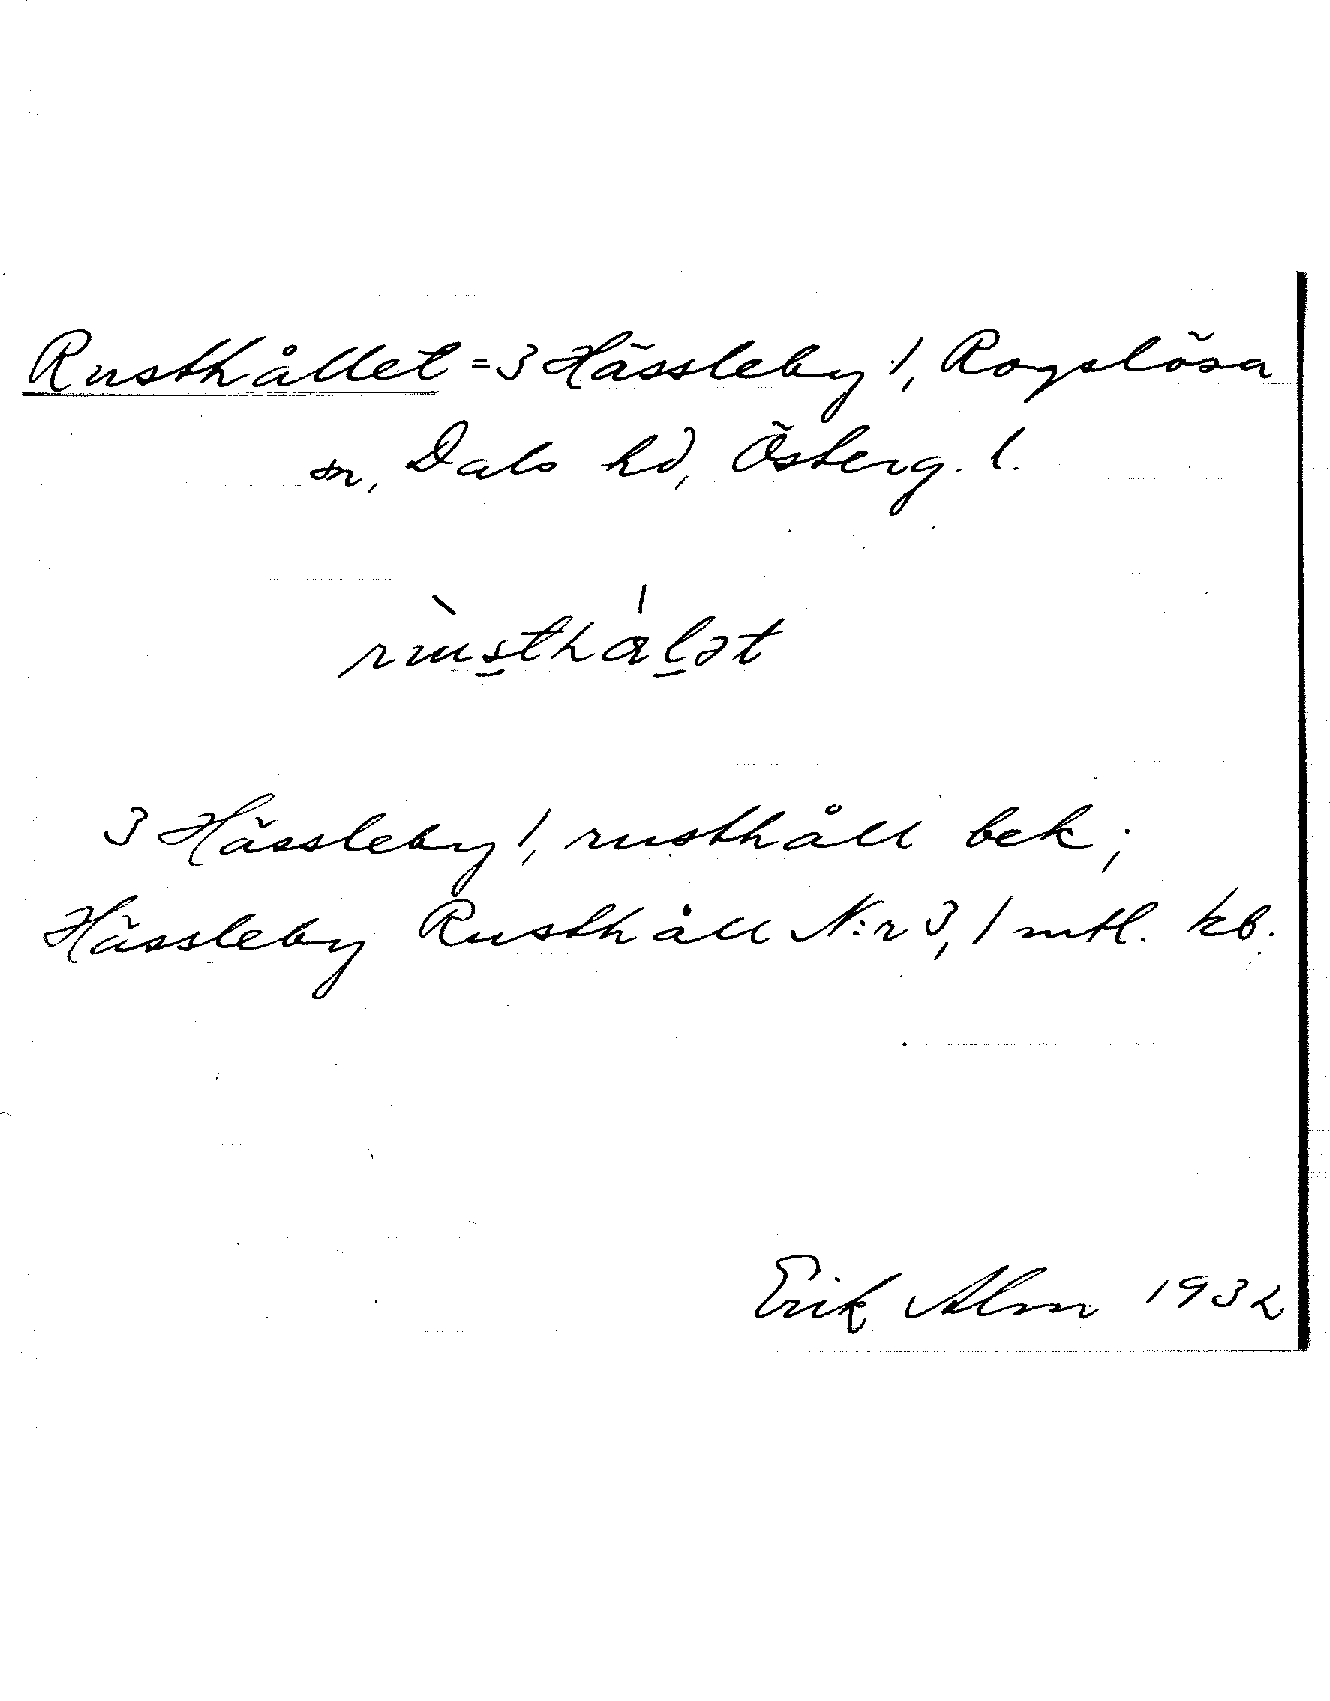 Rusthållet = 3 Hässleby 1, Rogslösa
sn, Dals hd, Österg. l.
rùsthálət
3 Hässleby 1, rusthåll bek;
Hässleby Rusthåll N:r 3, 1 mtl. kb.
Erik Alm 1932